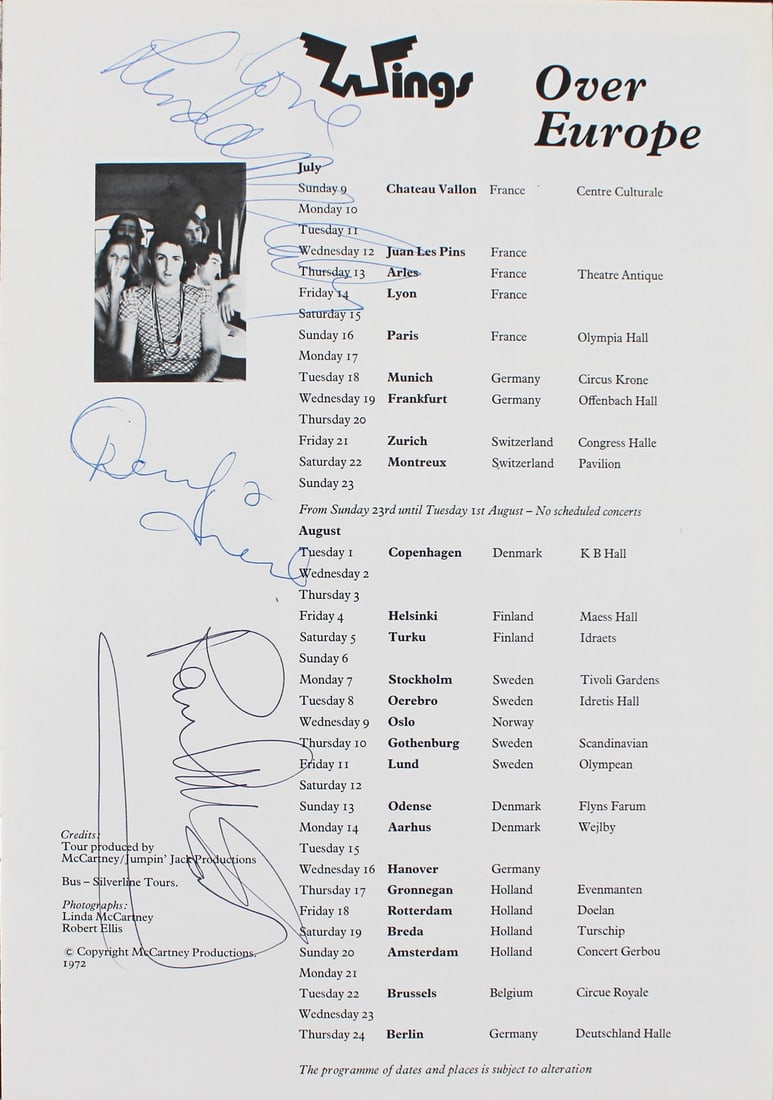 Love
Linda
Wings
Over
Europe
July
Sunday 9 Chateau Vallon France Centre Culturale
Monday 10
Tuesday 11
Wednesday 12 Juan Les Pins France
Thursday 13 Arles France Theatre Antique
Friday 14 Lyon France
Saturday 15
Sunday 16 Paris France Olympia Hall
Monday 17
Tuesday 18 Munich Germany Circus Krone
Wednesday 19 Frankfurt Germany Offenbach Hall
Thursday 20
Friday 21 Zurich Switzerland Congress Halle
Saturday 22 Montreux Switzerland Pavilion
Sunday 23
From Sunday 23rd until Tuesday 1st August – No scheduled concerts
August
Tuesday 1 Copenhagen Denmark K B Hall
Wednesday 2
Thursday 3
Friday 4 Helsinki Finland Maess Hall
Saturday 5 Turku Finland Idraets
Sunday 6
Monday 7 Stockholm Sweden Tivoli Gardens
Tuesday 8 Oerebro Sweden Idretis Hall
Wednesday 9 Oslo Norway
Thursday 10 Gothenburg Sweden Scandinavian
Friday 11 Lund Sweden Olympean
Saturday 12
Sunday 13 Odense Denmark Flyns Farum
Monday 14 Aarhus Denmark Wejlby
Tuesday 15
Wednesday 16 Hanover Germany
Thursday 17 Gronnegan Holland Evenmanten
Friday 18 Rotterdam Holland Doelan
Saturday 19 Breda Holland Turschip
Sunday 20 Amsterdam Holland Concert Gerbou
Monday 21
Tuesday 22 Brussels Belgium Circue Royale
Wednesday 23
Thursday 24 Berlin Germany Deutschland Halle
The programme of dates and places is subject to alteration
Denny
Paul
Credits:
Tour produced by
McCartney/Jumpin' Jack Productions
Bus – Silverline Tours.
Photographs:
Linda McCartney
Robert Ellis
© Copyright McCartney Productions.
1972